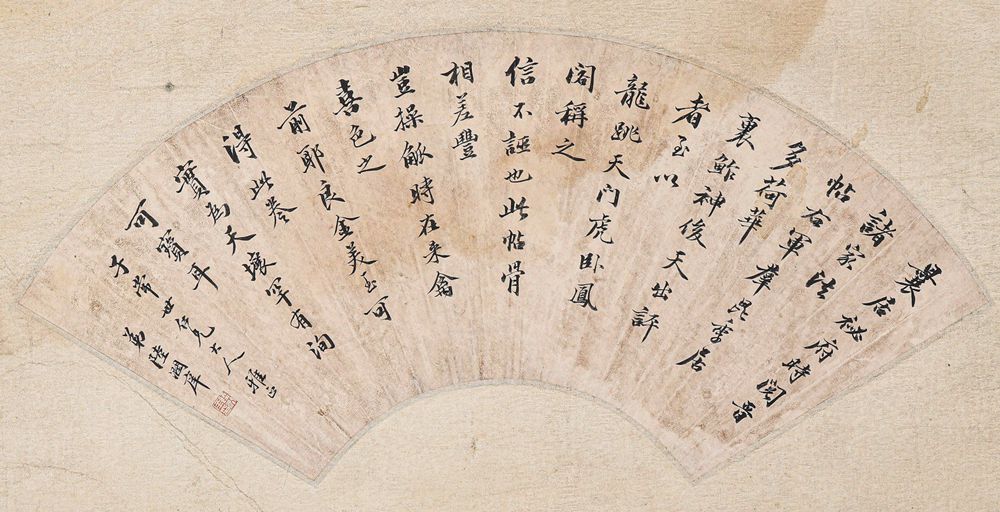 曩居秘府時閱晉
諸家法
帖右軍羣昆季居
多荷華
裹鮓神後天出評
者至以
龍跳天门虎卧鳳
閣稱之
信不誣也此帖骨
相差豐
豈操觚時在来禽
喜色之
前耶良金美玉可
得此卷
實為天壤罕有洵
可寶耳
子常世仁兄大人雅正
弟陸潤庠